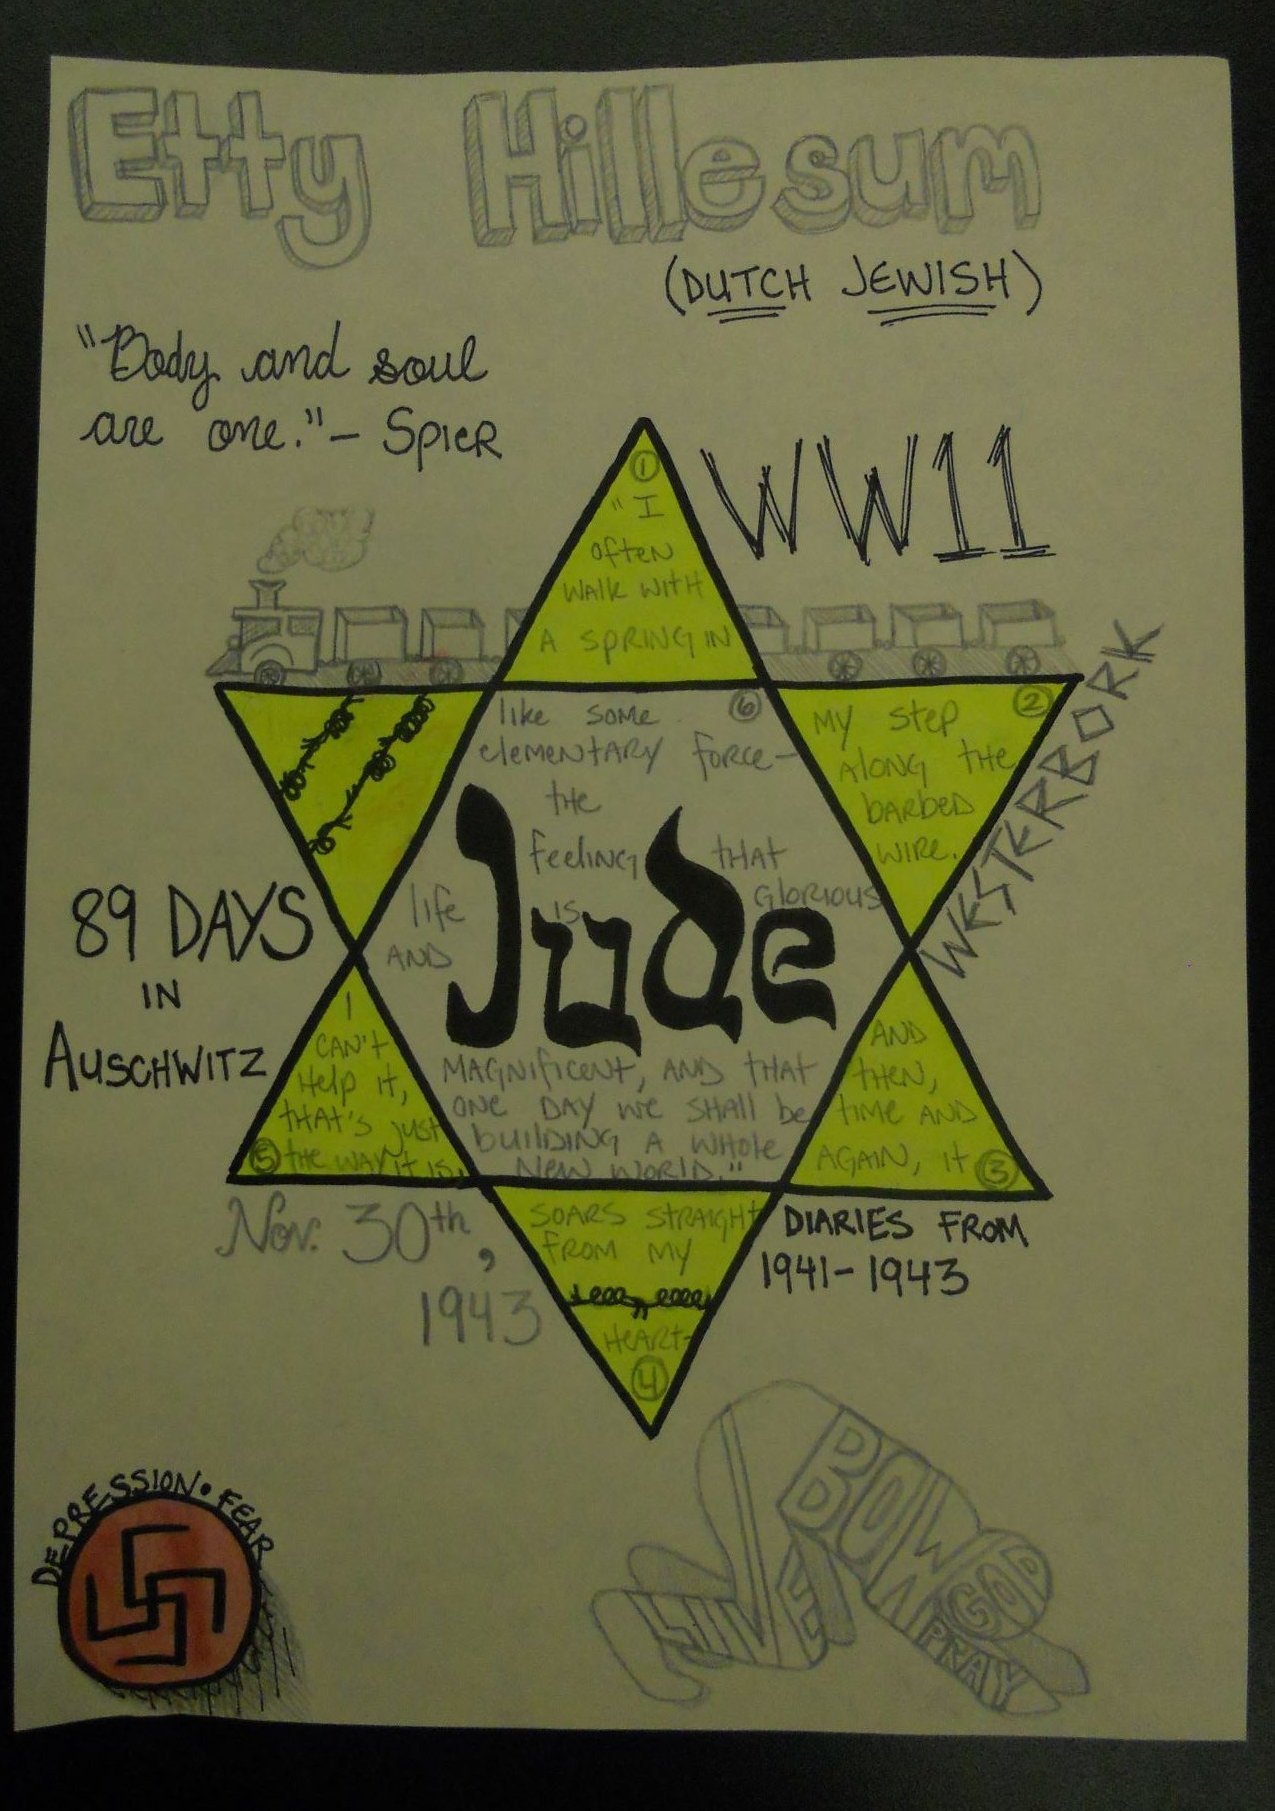 Etty Hillesum
(DUTCH JEWISH)
"Body and soul
are one." - SPIER
WW11
①
"I
often
WALK WITH
A SPRING IN
②
MY STEP
ALONG THE
bARbED
WIRE.
WESTERBORK
③
AND
THEN,
TIME AND
AGAIN, IT
④
SOARS STRAIGHT
FROM MY
HEART-
⑤
I
CAN'T
HELP IT,
THAT'S JUST
THE WAY IT IS,
⑥
like SOME
elementary force-
THE
feeling THAT
life IS GLORIOUS
AND
Jude
MAGNIFICENT, AND THAT
ONE DAY WE SHALL be
building A WHOLE
NEW WORLD."
89 DAYS
IN
AUSCHWITZ
Nov. 30th,
1943
DIARIES FROM
1941-1943
DEPRESSION • FEAR
BOW
GOD
PRAY